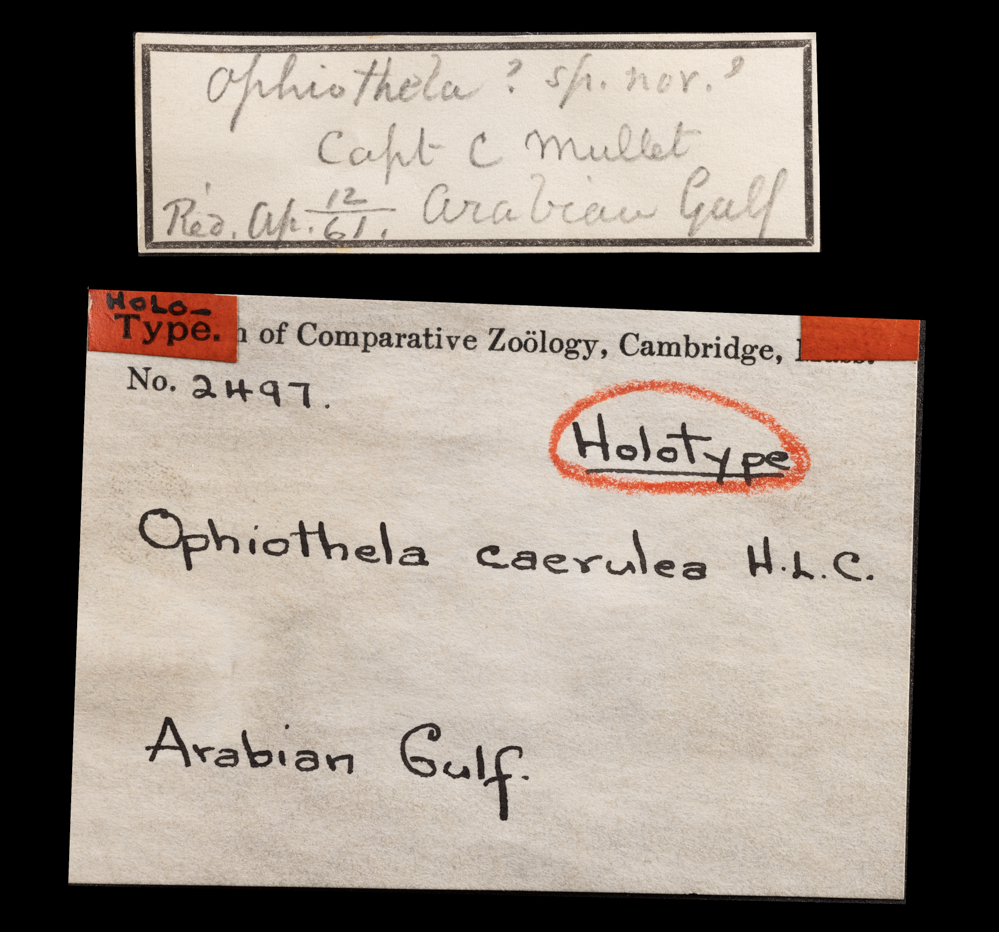 Ophiothela ? sp. nov. ?
Capt C Mullet
Réc. Ap. 12/61. Arabian Gulf
HOLO-
Type. of Comparative Zoölogy, Cambridge, Mass.
No. 2497.
Holotype
Ophiothela caerulea H.L.C.
Arabian Gulf.